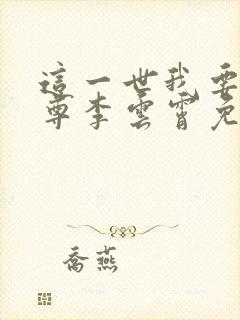 這一世我要
尊李雲霄免
喬燕